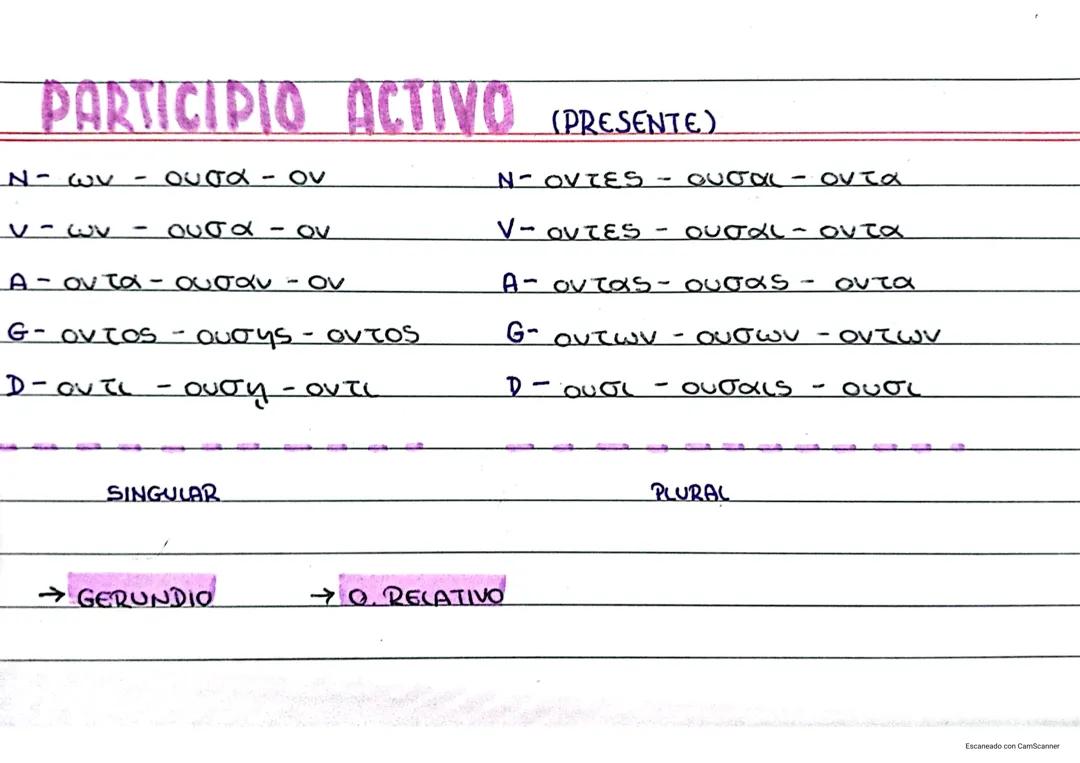 PARTICIPIO ACTIVO (PRESENTE)
N- ων - ουσα - ον N- οντες - ουσαι - οντα
V- ων - ουσα - ον V- οντες - ουσαι - οντα
A- οντα - ουσαν - ον A- οντας - ουσας - οντα
G- οντος - ουσης - οντος G- οντων - ουσων - οντων
D- οντι - ουσῃ - οντι D- ουσι - ουσαις - ουσι
SINGULAR PLURAL
→ GERUNDIO → O. RELATIVO
Escaneado con CamScanner